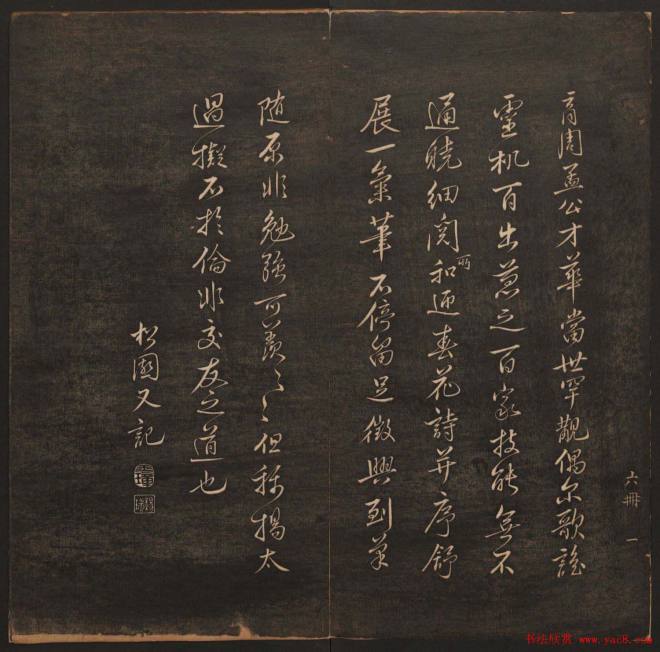 育周孟公才華當世罕觀偶尔歌謠
靈机百出兼之百家技能無不
通曉细閱所和迎春花詩并序舒
展一氣筆不停留足徵興到筆
随原非勉强可羡々々但称揚太
過擬不於倫非交友之道也
松園又記
六冊 一
书法欣赏 www.yac8.com